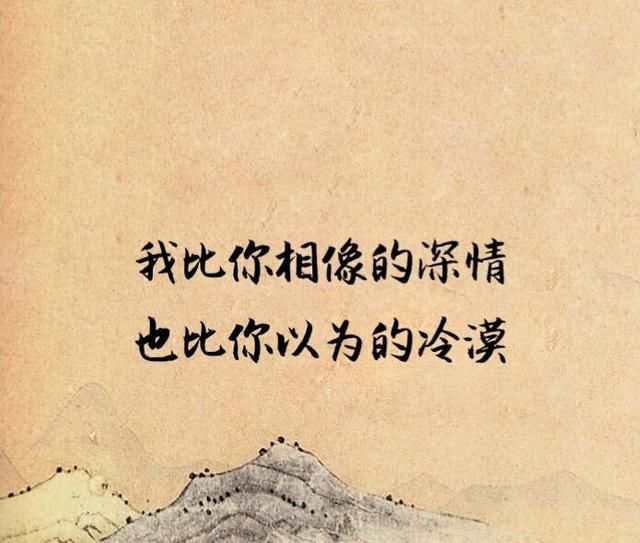 我比你相像的深情
也比你以为的冷漠